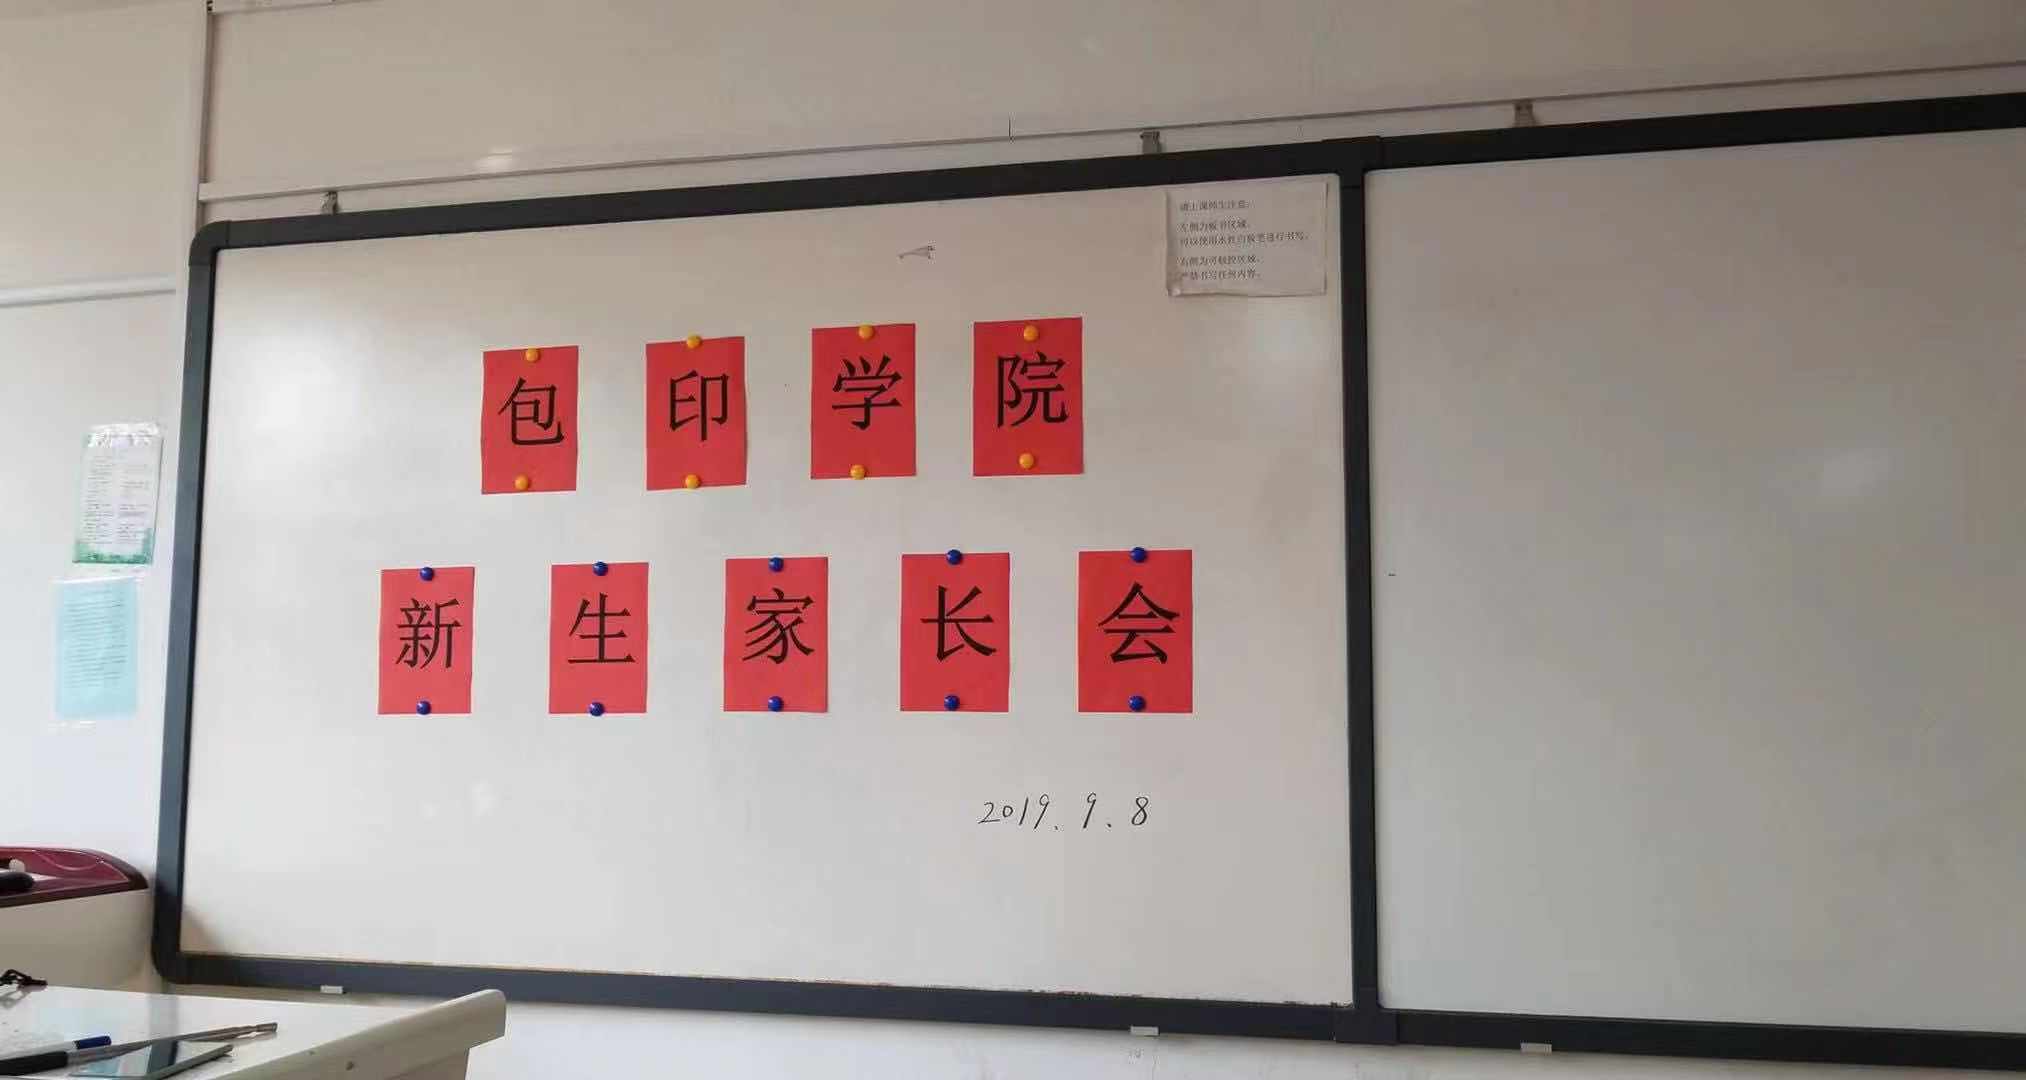 请上课师生注意:
左侧为板书区域,
可以使用水性白板笔进行书写。
右侧为可触控区域,
严禁书写任何内容。
包印学院
新生家长会
2019.9.8